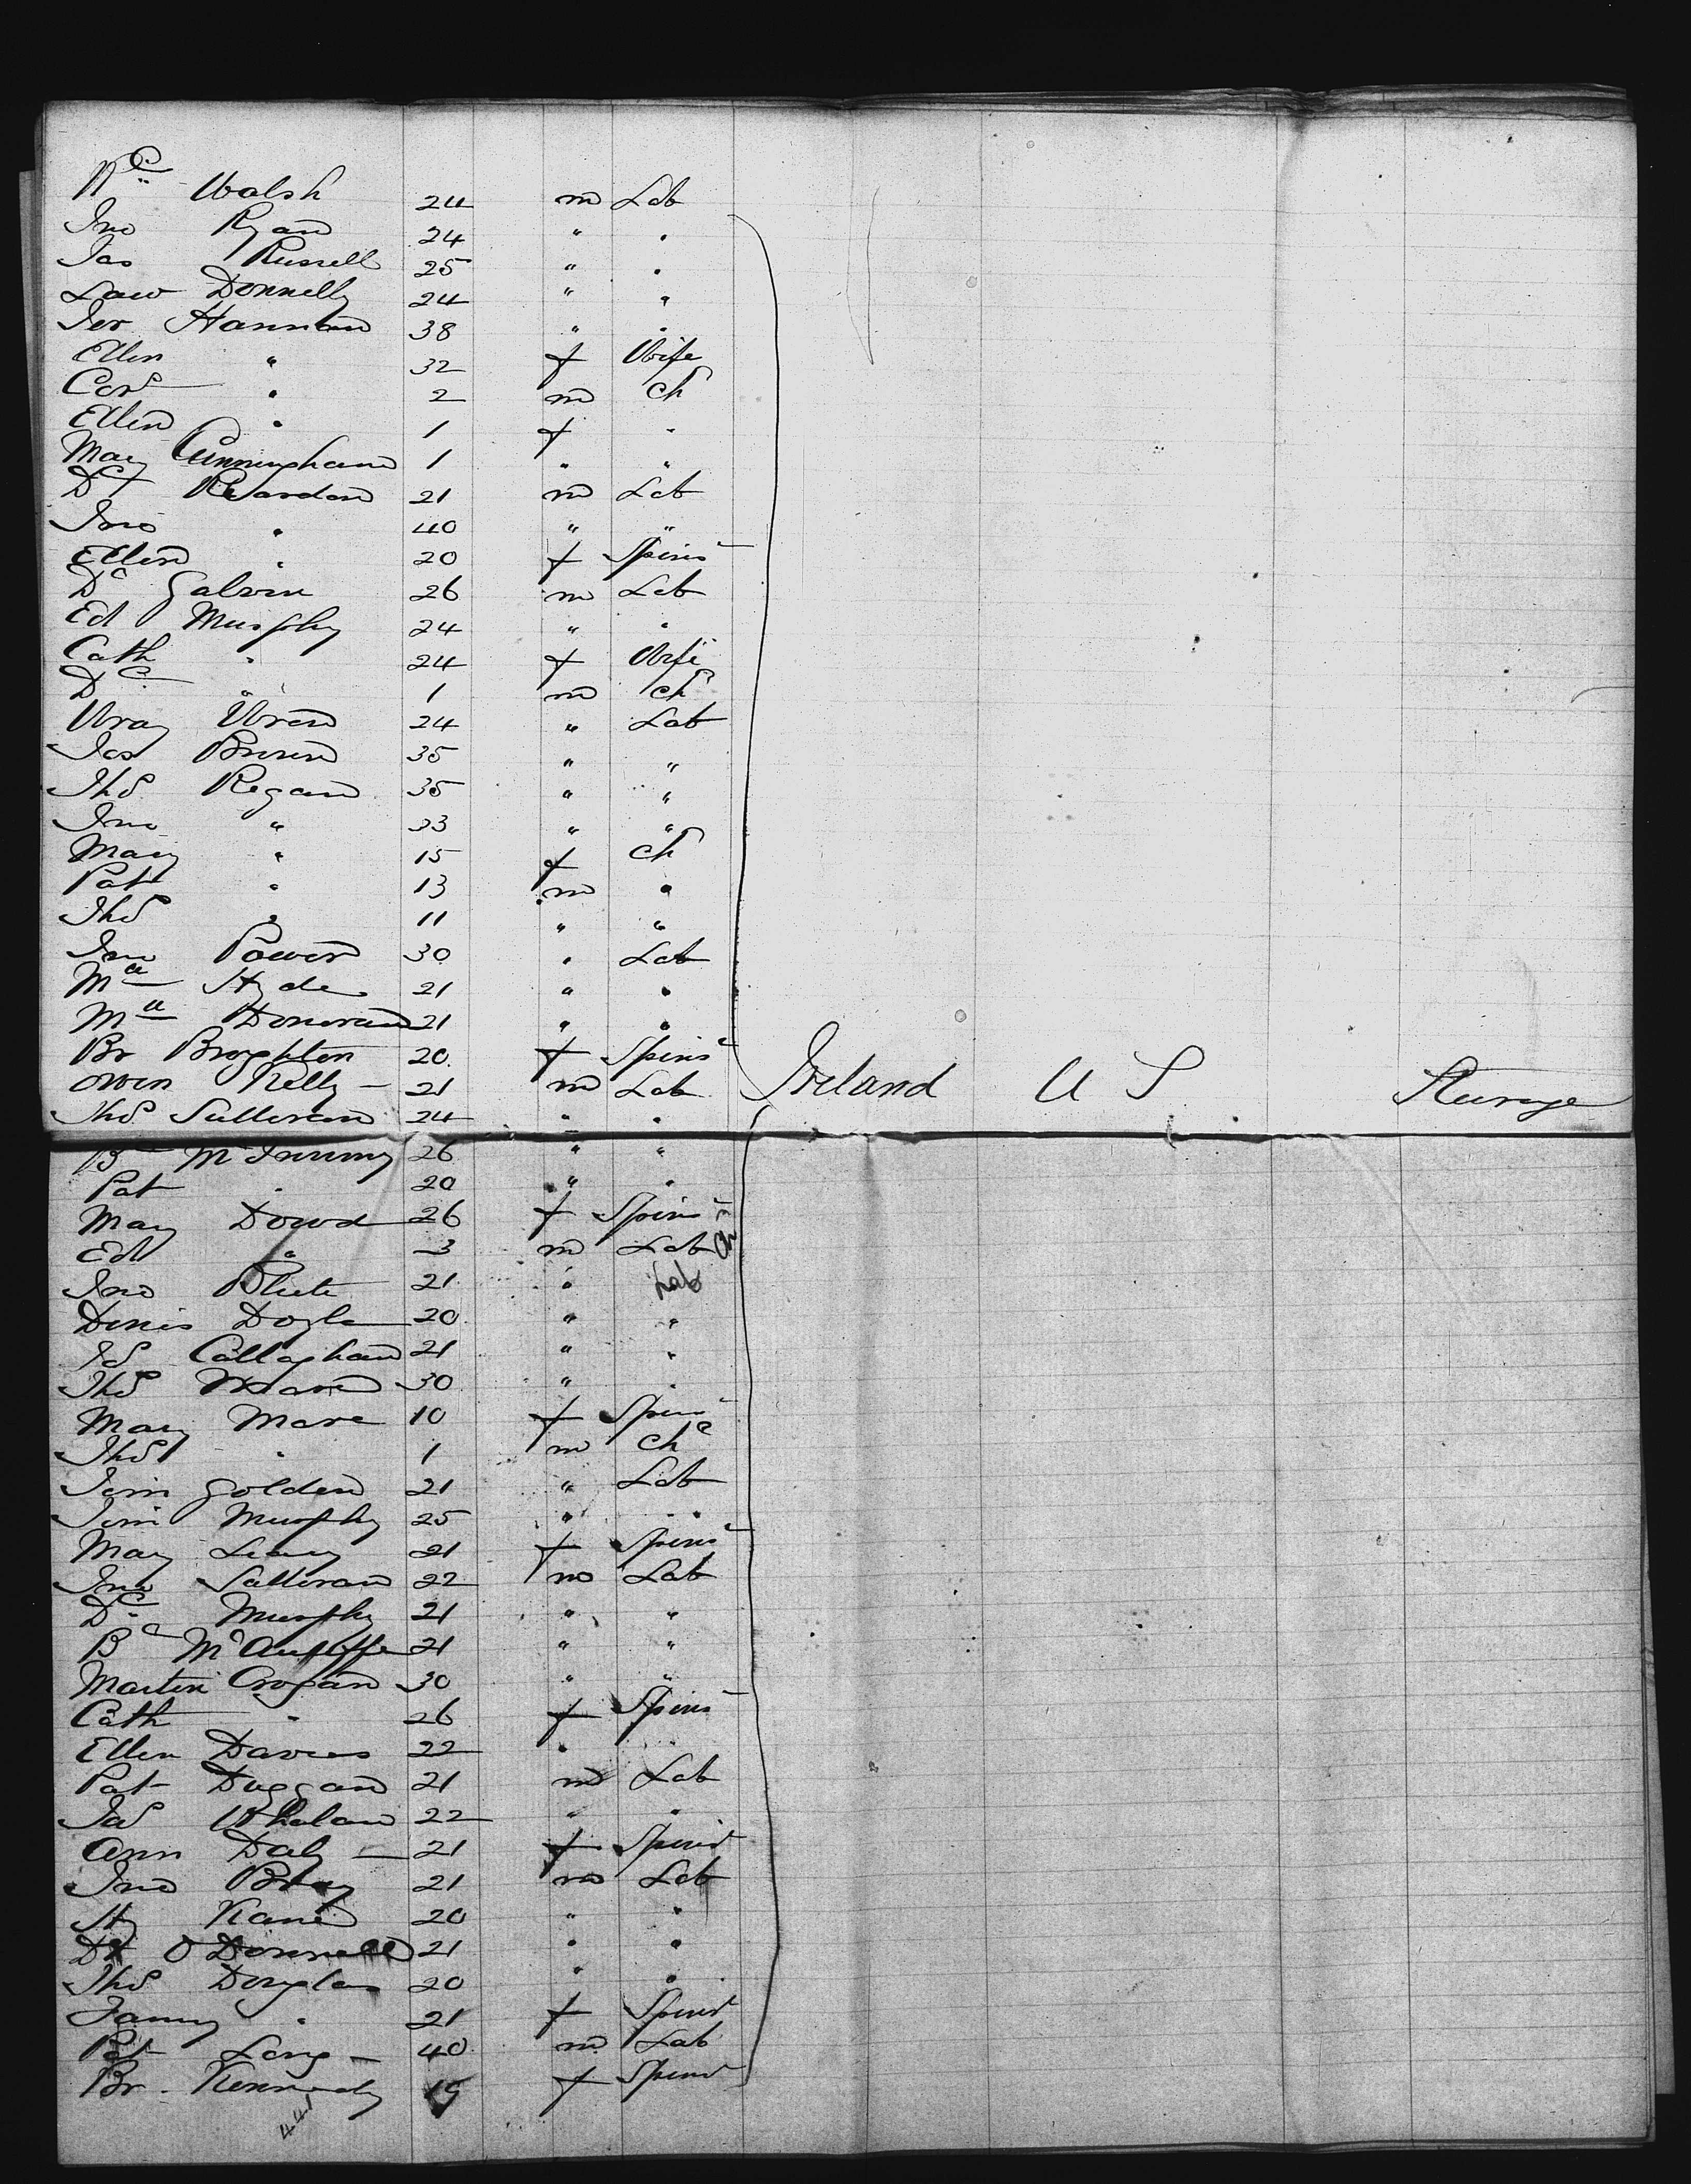 Walsh 24 m Lab
Jno Ryan 24 " "
Jas Russell 25 " "
Law Donnelly 24 " "
Jer Hannan 38 " "
Ellen " 32 f Wife
Cors " 2 m Ch
Ellen " 1 f "
Mary Cunningham 1 " "
Reardon 21 m Lab
Jno " 40 " "
Ellen " 20 f Spins
Dl Galvin 26 m Lab
Ed Murphy 24 " "
Cath " 24 f Wife
Dl " 1 m Ch
Wren 24 " Lab
Jas Brown 35 " "
Thos Regan 35 " "
Jno " 33 " "
Mary " 15 f Ch
Pat " 13 m "
Thos " 11 " "
Jno Power 30 " Lab
Hyde 21 " "
Donovan 21 " "
Br Broghton 20 f Spins
Owen Kelly 21 m Lab Ireland U S Steerage
Thos Sullivan 24 " "
26 " "
Pat " 20 " "
Mary Dowd 26 f Spins
Ed " 3 m Lab Ch
Jno 21 " Lab
Denis Doyle 20 " "
Js Callaghan 21 " "
Thos 30 " "
Mary Mare 10 f Spins
Thos " 1 m Ch
Jim Golden 21 " Lab
Jim Murphy 25 " "
Mary Leary 21 f Spins
Jno Sullivan 22 m Lab
Dl Murphy 21 " "
McAuliffe 21 " "
Martin Crogan 30 " "
Cath " 26 f Spins
Ellen Davies 22 " "
Pat Duggan 21 m Lab
Jas Whelan 22 " "
Ann Daly 21 f Spins
Jno Bray 21 m Lab
Hy Kane 20 " "
O Donnell 21 " "
Thos Douglas 20 " "
Fanny " 21 f Spins
Pat Long 40 m Lab
Br Kennedy 19 f Spins
441